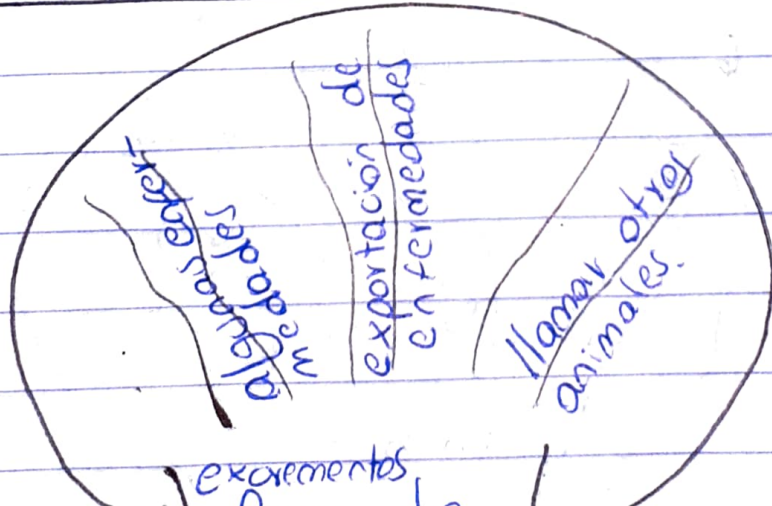 algunas enfer-
medades
exportación de
enfermedades
llamar otros
animales.
excrementos